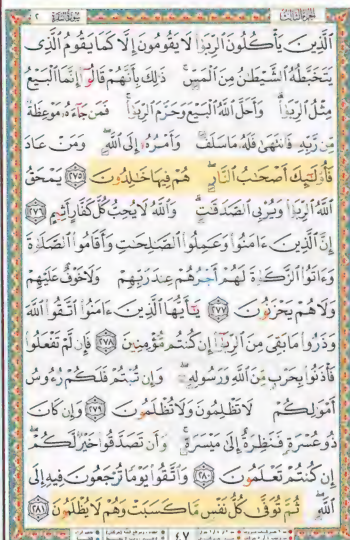 الجزء الثالث
سورة البقرة ٢
ٱلَّذِينَ يَأْكُلُونَ ٱلرِّبَوٰا۟ لَا يَقُومُونَ إِلَّا كَمَا يَقُومُ ٱلَّذِى
يَتَخَبَّطُهُ ٱلشَّيْطَٰنُ مِنَ ٱلْمَسِّ ۚ ذَٰلِكَ بِأَنَّهُمْ قَالُوٓا۟ إِنَّمَا ٱلْبَيْعُ
مِثْلُ ٱلرِّبَوٰا۟ ۗ وَأَحَلَّ ٱللَّهُ ٱلْبَيْعَ وَحَرَّمَ ٱلرِّبَوٰا۟ ۚ فَمَن جَآءَهُۥ مَوْعِظَةٌ
مِّن رَّبِّهِۦ فَٱنتَهَىٰ فَلَهُۥ مَا سَلَفَ وَأَمْرُهُۥٓ إِلَى ٱللَّهِ ۖ وَمَنْ عَادَ
فَأُو۟لَٰٓئِكَ أَصْحَٰبُ ٱلنَّارِ ۖ هُمْ فِيهَا خَٰلِدُونَ ﴿٢٧٥﴾ يَمْحَقُ
ٱللَّهُ ٱلرِّبَوٰا۟ وَيُرْبِى ٱلصَّدَقَٰتِ ۗ وَٱللَّهُ لَا يُحِبُّ كُلَّ كَفَّارٍ أَثِيمٍ ﴿٢٧٦﴾
إِنَّ ٱلَّذِينَ ءَامَنُوا۟ وَعَمِلُوا۟ ٱلصَّٰلِحَٰتِ وَأَقَامُوا۟ ٱلصَّلَوٰةَ
وَءَاتَوُا۟ ٱلزَّكَوٰةَ لَهُمْ أَجْرُهُمْ عِندَ رَبِّهِمْ وَلَا خَوْفٌ عَلَيْهِمْ
وَلَا هُمْ يَحْزَنُونَ ﴿٢٧٧﴾ يَٰٓأَيُّهَا ٱلَّذِينَ ءَامَنُوا۟ ٱتَّقُوا۟ ٱللَّهَ
وَذَرُوا۟ مَا بَقِىَ مِنَ ٱلرِّبَوٰٓا۟ إِن كُنتُم مُّؤْمِنِينَ ﴿٢٧٨﴾ فَإِن لَّمْ تَفْعَلُوا۟
فَأْذَنُوا۟ بِحَرْبٍ مِّنَ ٱللَّهِ وَرَسُولِهِۦ ۖ وَإِن تُبْتُمْ فَلَكُمْ رُءُوسُ
أَمْوَٰلِكُمْ لَا تَظْلِمُونَ وَلَا تُظْلَمُونَ ﴿٢٧٩﴾ وَإِن كَانَ
ذُو عُسْرَةٍ فَنَظِرَةٌ إِلَىٰ مَيْسَرَةٍ ۚ وَأَن تَصَدَّقُوا۟ خَيْرٌ لَّكُمْ ۖ
إِن كُنتُمْ تَعْلَمُونَ ﴿٢٨٠﴾ وَٱتَّقُوا۟ يَوْمًا تُرْجَعُونَ فِيهِ إِلَى
ٱللَّهِ ۖ ثُمَّ تُوَفَّىٰ كُلُّ نَفْسٍ مَّا كَسَبَتْ وَهُمْ لَا يُظْلَمُونَ ﴿٢٨١﴾
٤٧